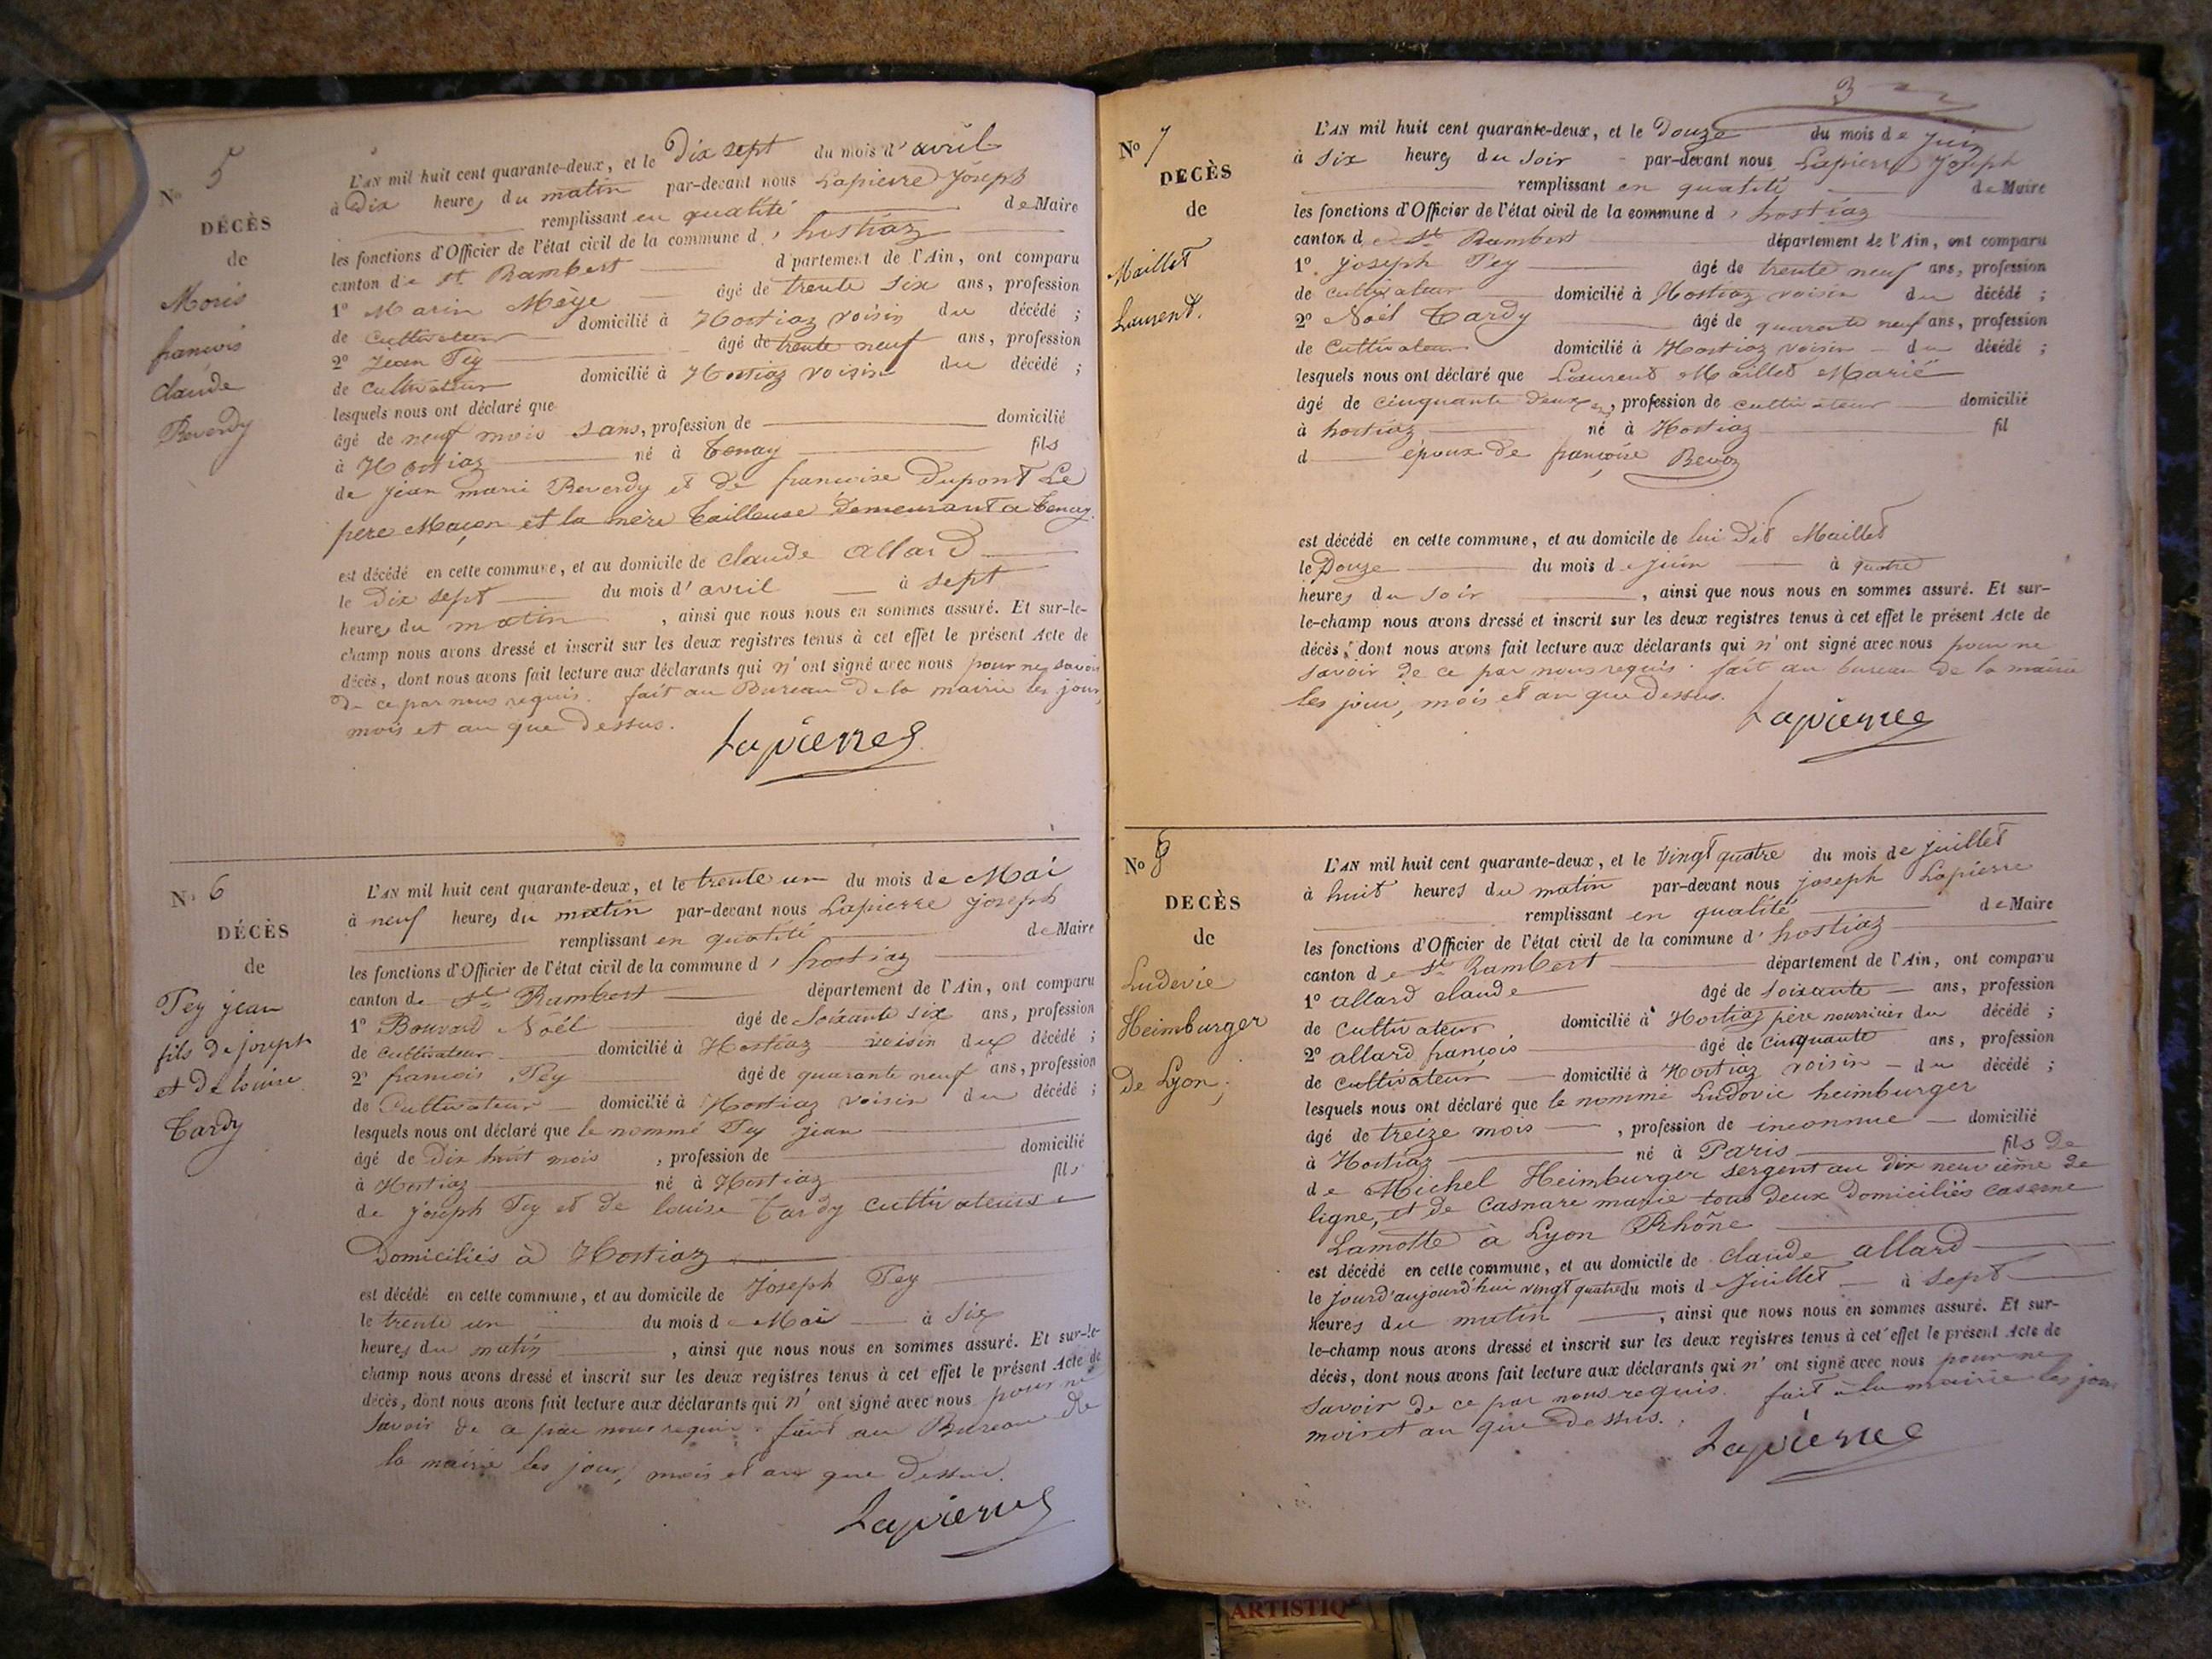 No 5
DÉCÈS
de
Moris
francois
claude
Reverdy
L'AN mil huit cent quarante-deux, et le Dix sept du mois d'avril
à Dix heures du matin par-devant nous Lapierre joseph
remplissant en qualité de Maire
les fonctions d'Officier de l'état civil de la commune d'hostiaz
canton de St. Rambert département de l'Ain, ont comparu
1° Marin Mège âgé de trente six ans, profession
de cultivateur domicilié à Hostiaz voisin du décédé ;
2° Jean Tey âgé de trente neuf ans, profession
de cultivateur domicilié à Hostiaz voisin du décédé ;
lesquels nous ont déclaré que
âgé de neuf mois sans, profession de domicilié
à Hostiaz né à Tenay fils
de jean marie Reverdy et de francoise Dupont Le
père Maçon et la mère tailleuse Demeurant a Tenay.
est décédé en cette commune, et au domicile de claude allard
le dix sept du mois d'avril à sept
heures du matin, ainsi que nous nous en sommes assuré. Et sur-le-
champ nous avons dressé et inscrit sur les deux registres tenus à cet effet le présent Acte de
décès, dont nous avons fait lecture aux déclarants qui n'ont signé avec nous pour ne savoir
de ce par nous requis. fait au Bureau de la mairie les jour,
mois et an que dessus.
Lapierre
No 6
DÉCÈS
de
Tey jean
fils de joseph
et de louise
Tardy
L'AN mil huit cent quarante-deux, et le trente un du mois de Mai
à neuf heures du matin par-devant nous Lapierre joseph
remplissant en qualité de Maire
les fonctions d'Officier de l'état civil de la commune d'hostiaz
canton de St Rambert département de l'Ain, ont comparu
1° Bouvard Noël âgé de soixante six ans, profession
de cultivateur domicilié à Hostiaz voisin du décédé ;
2° francois Tey âgé de quarante neuf ans, profession
de cultivateur domicilié à Hostiaz voisin du décédé ;
lesquels nous ont déclaré que le nommé Tey jean
âgé de Dix huit mois, profession de domicilié
à Hostiaz né à Hostiaz fils
de joseph Tey et de louise Tardy cultivateurs
Domiciliés à Hostiaz
est décédé en cette commune, et au domicile de Joseph Tey
le trente un du mois de Mai à six
heures du matin, ainsi que nous nous en sommes assuré. Et sur-le-
champ nous avons dressé et inscrit sur les deux registres tenus à cet effet le présent Acte de
décès, dont nous avons fait lecture aux déclarants qui n'ont signé avec nous pour ne
savoir de ce par nous requis. fait au Bureau de
la mairie les jour, mois et an que dessus.
Lapierre
3
No 7
DÉCÈS
de
Maillet
Laurent.
L'AN mil huit cent quarante-deux, et le Douze du mois de juin
à six heures du soir par-devant nous Lapierre Joseph
remplissant en qualité de Maire
les fonctions d'Officier de l'état civil de la commune d'hostiaz
canton de St Rambert département de l'Ain, ont comparu
1° joseph Tey âgé de trente neuf ans, profession
de cultivateur domicilié à Hostiaz voisin du décédé ;
2° Noël Tardy âgé de quarante neuf ans, profession
de cultivateur domicilié à Hostiaz voisin du décédé ;
lesquels nous ont déclaré que Laurent Maillet Marié
âgé de cinquante deux ans, profession de cultivateur domicilié
à hostiaz né à Hostiaz fil
d époux de françoise
est décédé en cette commune, et au domicile de lui dit Maillet
le Douze du mois de juin à quatre
heures du soir, ainsi que nous nous en sommes assuré. Et sur-
le-champ nous avons dressé et inscrit sur les deux registres tenus à cet effet le présent Acte de
décès, dont nous avons fait lecture aux déclarants qui n'ont signé avec nous pour ne
savoir de ce par nous requis. fait au bureau de la mairie
les jour, mois et an que dessus.
Lapierre
No 8
DÉCÈS
de
Ludovic
Heimburger
De Lyon,
L'AN mil huit cent quarante-deux, et le vingt quatre du mois de juillet
à huit heures du matin par-devant nous joseph Lapierre
remplissant en qualité de Maire
les fonctions d'Officier de l'état civil de la commune d'hostiaz
canton de St Rambert département de l'Ain, ont comparu
1° allard claude âgé de soixante ans, profession
de cultivateur domicilié à Hostiaz père nourricier du décédé ;
2° allard françois âgé de cinquante ans, profession
de cultivateur domicilié à Hostiaz voisin du décédé ;
lesquels nous ont déclaré que le nommé Ludovic heimburger
âgé de treize mois, profession de inconnue domicilié
à Hostiaz né à Paris fils de
de Michel Heimburger sergent au Dix neuvième de
ligne, et de Casnare marie tous deux Domiciliés caserne
Lamotte à Lyon Rhône
est décédé en cette commune, et au domicile de claude allard
le jourd'aujourd'hui vingt quatre du mois de Juillet à sept
heures du matin, ainsi que nous nous en sommes assuré. Et sur-
le-champ nous avons dressé et inscrit sur les deux registres tenus à cet effet le présent Acte de
décès, dont nous avons fait lecture aux déclarants qui n'ont signé avec nous pour ne
savoir de ce par nous requis. fait à la mairie les jour
mois et an que dessus.
Lapierre
ARTISTIQ